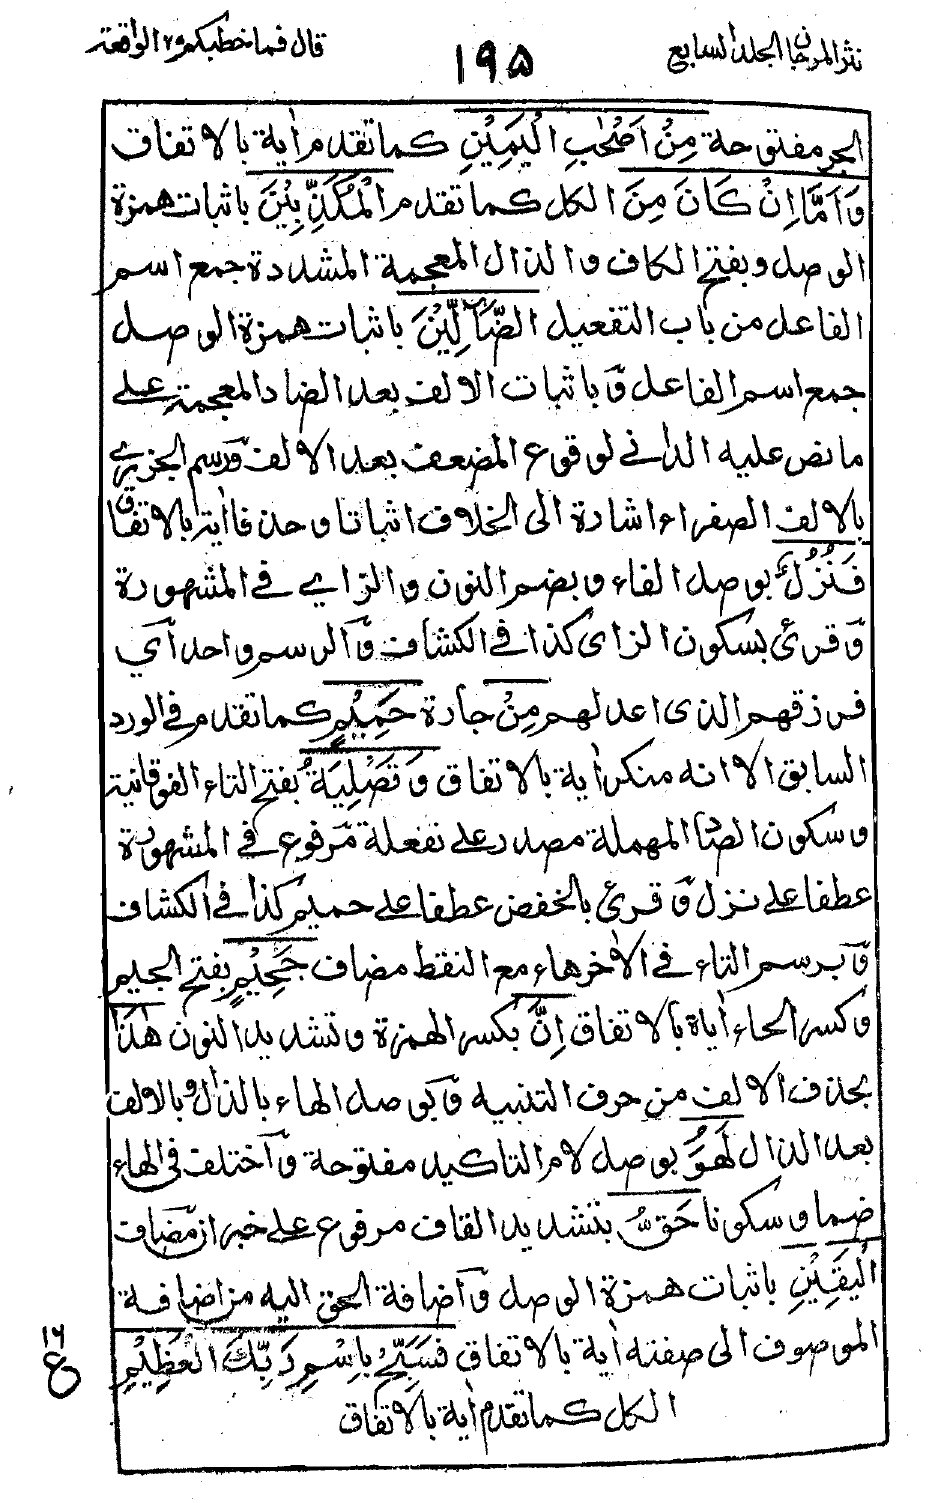 نثر المرجان الجلد السابع
١٩٥
قال فما خطبكم ٢٧ الواقعة
الجر مفتوحة مِنْ اَصْحٰبِ الْيَمِيْنِ كما تقدم اٰية بالاتفاق
وَاَمَّا اِنْ كَانَ مِنَ الكل كما تقدم الْمُكَذِّبِيْنَ باثبات همزة
الوصل وبفتح الكاف والذال المعجمة المشددة جمع اسم
الفاعل من باب التفعيل الضَّآلِّيْنَ باثبات همزة الوصل
جمع اسم الفاعل وّباثبات الالف بعد الضاد المعجمة على
ما نص عليه الدانے لوقوع المضعف بعد الالف وّرسم الجزرے
بالالف الصفراء اشارة الى الخلاف اثباتا وحذفا اٰية بالاتفاق
فَنُزُلٌ بوصل الفاء وبضم النون والزاے فے المشهورة
وّقرئ بسكون الزاى كذا فے الكشاف وّالرسم واحد اٰي
فرزقهم الذى اعد لهم مِنْ جارة حَمِيْمٍ كما تقدم فى الورد
السابق الا انه منكر اٰية بالاتفاق وَتَصْلِيَةُ بفتح التاء الفوقانية
وسكون الصاد المهملة مصدر على تفعلة مرفوع فے المشهورة
عطفا على نزل وّقرئ بالخفض عطفا على حميم كذا فے الكشاف
وّبرسم التاء فے الاٰخر هاء مع النقط مضاف جَحِيْمٍ بفتح الجيم
وكسر الحاء اٰياة بالاتفاق اِنَّ بكسر الهمزة وتشديد النون هٰذَا
بحذف الالف من حرف التنبيه وّبوصل الهاء بالذال وبالالف
بعد الذال لَهُوَ بوصل لام التاكيد مفتوحة وّاختلف فى الهاء
ضما وسكونا حَقُّ بتشديد القاف مرفوع على خبر ان مضاف
الْيَقِيْنِ باثبات همزة الوصل وّاضافة الحق اليه من اضافة
الموصوف الى صفته اٰية بالاتفاق فَسَبِّحْ بِاسْمِ رَبِّكَ الْعَظِيْمِ
١٦
ع
الكل كما تقدم اٰية بالاتفاق